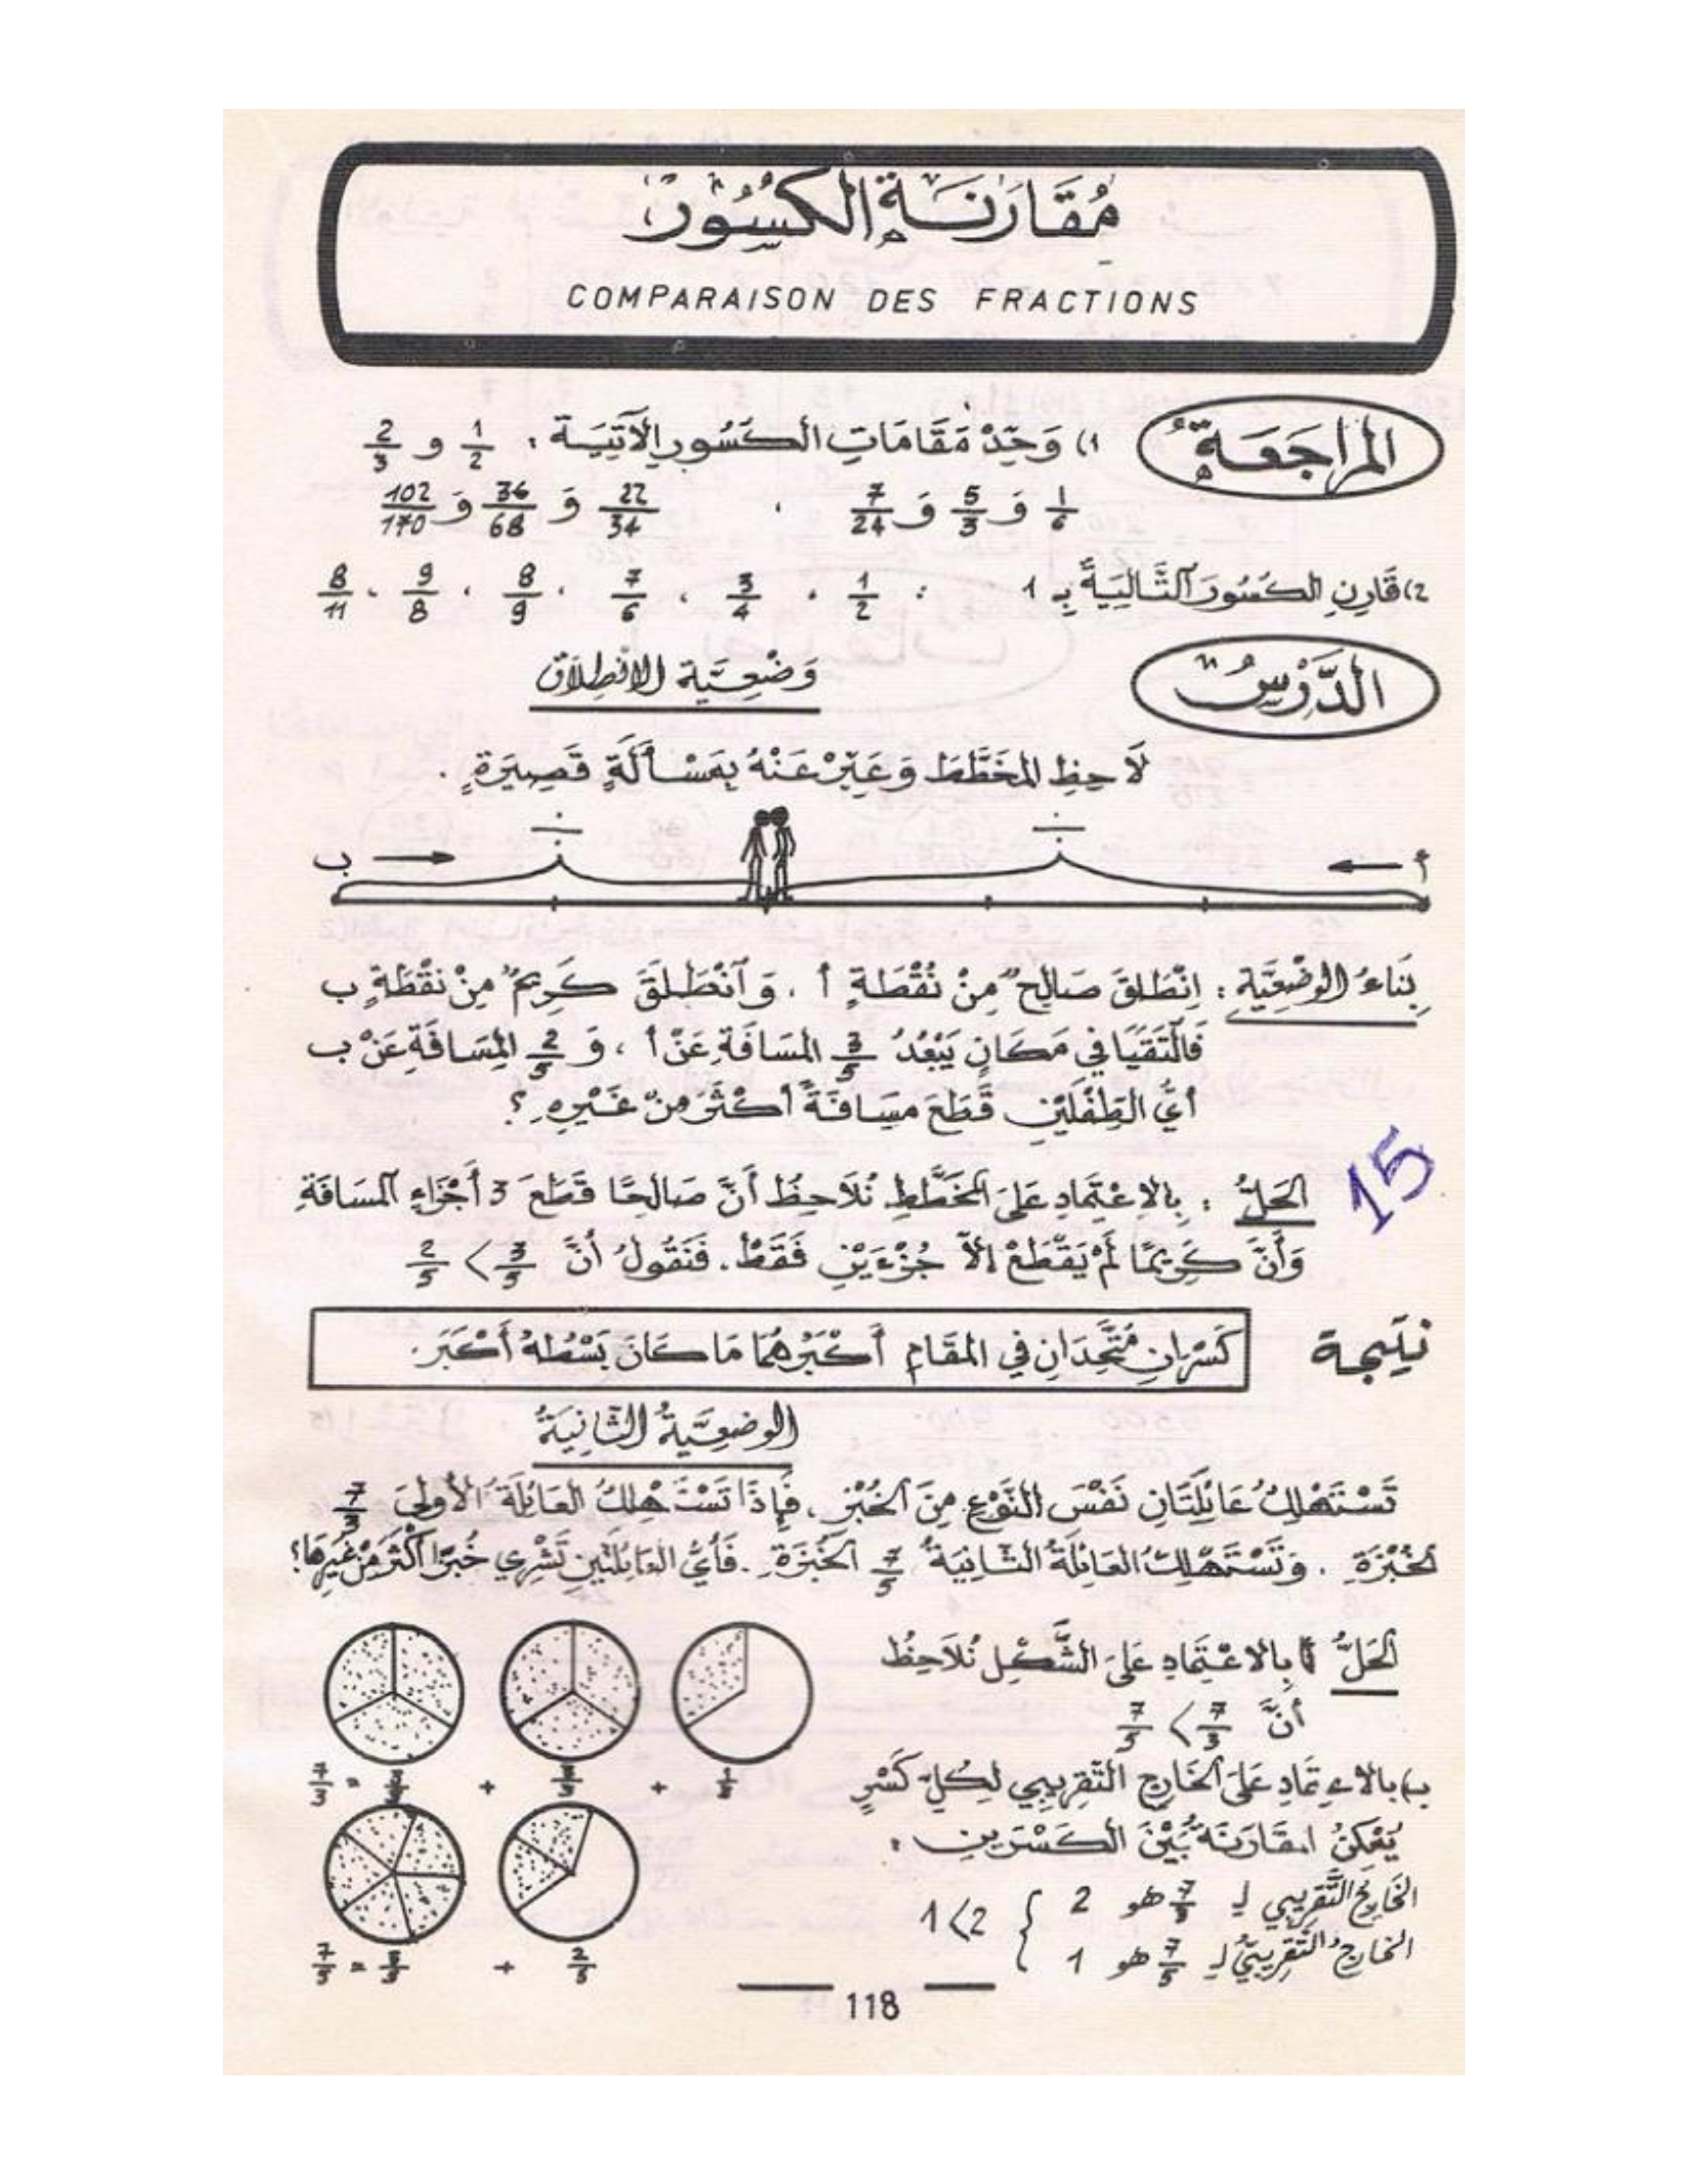 مُقَارَنَةُ الكُسُورِ
COMPARAISON DES FRACTIONS
المُرَاجَعَةُ
1) وَحِّدْ مَقَامَاتِ الكُسُورِ الآتِيَةِ : 1/2 و 2/3
1/6 وَ 5/3 وَ 7/24 ، 22/34 وَ 36/68 وَ 102/170
2) قَارِنِ الكُسُورَ التَّالِيَةَ بِـ 1 : 1/2 ، 3/4 ، 7/6 ، 8/9 ، 9/8 ، 8/11
الدَّرْسُ
وَضْعِيَّة الانْطِلاَق
لاَحِظِ المُخَطَّطَ وَعَبِّرْ عَنْهُ بِمَسْأَلَةٍ قَصِيرَةٍ .
أ ← → ب
بِنَاءُ الوَضْعِيَّةِ : اِنْطَلَقَ صَالِحٌ مِنْ نُقْطَةِ أ ، وَانْطَلَقَ كَرِيمٌ مِنْ نُقْطَةِ ب
فَالْتَقَيَا فِي مَكَانٍ يَبْعُدُ 3/5 المَسَافَةِ عَنْ أ ، وَ 2/5 المَسَافَةِ عَنْ ب
أَيُّ الطِّفْلَيْنِ قَطَعَ مَسَافَةً أَكْثَرَ مِنْ غَيْرِهِ ؟
15
الحَلُّ : بِالاِعْتِمَادِ عَلَى المُخَطَّطِ نُلاَحِظُ أَنَّ صَالِحًا قَطَعَ 3 أَجْزَاءِ المَسَافَةِ
وَأَنَّ كَرِيمًا لَمْ يَقْطَعْ إِلاَّ جُزْءَيْنِ فَقَطْ . فَنَقُولُ أَنَّ 3/5 > 2/5
نتيجة
كَسْرَانِ مُتَّحِدَانِ فِي المَقَامِ أَكْبَرُهُمَا مَا كَانَ بَسْطُهُ أَكْبَرَ .
الوضعِيَّةُ الثَّانِيَةُ
تَسْتَهْلِكُ عَائِلَتَانِ نَفْسَ النَّوْعِ مِنَ الخُبْزِ . فَإِذَا تَسْتَهْلِكُ العَائِلَةُ الأُولَى 7/3
الخُبْزَةِ . وَتَسْتَهْلِكُ العَائِلَةُ الثَّانِيَةُ 7/5 الخُبْزَةِ . فَأَيُّ العَائِلَتَيْنِ تَشْرِي خُبْزًا أَكْثَرَ مِنْ غَيْرِهَا ؟
الحَلُّ أ) بِالاعْتِمَادِ عَلَى الشَّكْلِ نُلاَحِظُ
أَنَّ 7/3 > 7/5
7/3 = 3/3 + 3/3 + 1/3
ب) بالاعتِمَادِ عَلَى الخَارِجِ التَّقْرِيبِي لِكُلِّ كَسْرٍ
يُمْكِنُ المقَارَنَةُ بَيْنَ الكَسْرَيْنِ :
الخَارِجُ التَّقْرِيبِي لِـ 7/3 هو 2
الخارِجُ التَّقْرِيبِيُّ لِـ 7/5 هو 1
1<2
7/5 = 5/5 + 2/5
118